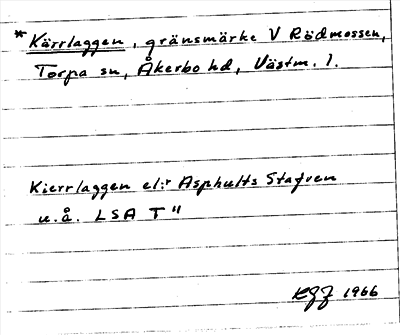 * Kärrlaggen, gränsmärke V Rödmossen,
Torpa sn, Åkerbo hd, Västm. l.
Kierrlaggen el:r Asphults Stafren
u.å. LSA T"
1966